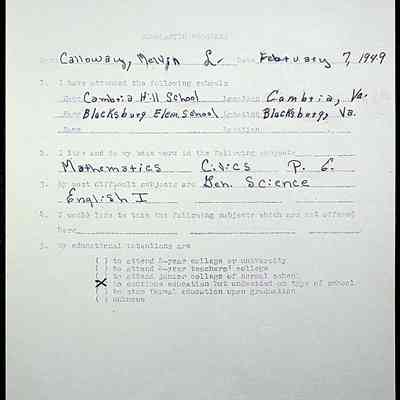 SCHOLASTIC PROGRESS
Name Calloway, Melvin L. Date February 7, 1949
1. I have attended the following schools
Name Cambria Hill School Location Cambria, Va.
Name Blacksburg Elem. School Location Blacksburg, Va.
Name Location
2. I like and do my best work in the following subjects
Mathematics Civics P. E.
3. My most difficult subjects are Gen. Science
English I
4. I would like to take the following subjects which are not offered
here
5. My educational intentions are
( ) to attend 4-year college or university
( ) to attend 4-year teachers' college
( ) to attend junior college or normal school
(X) to continue education but undecided on type of school
( ) to stop formal education upon graduation
( ) unknown